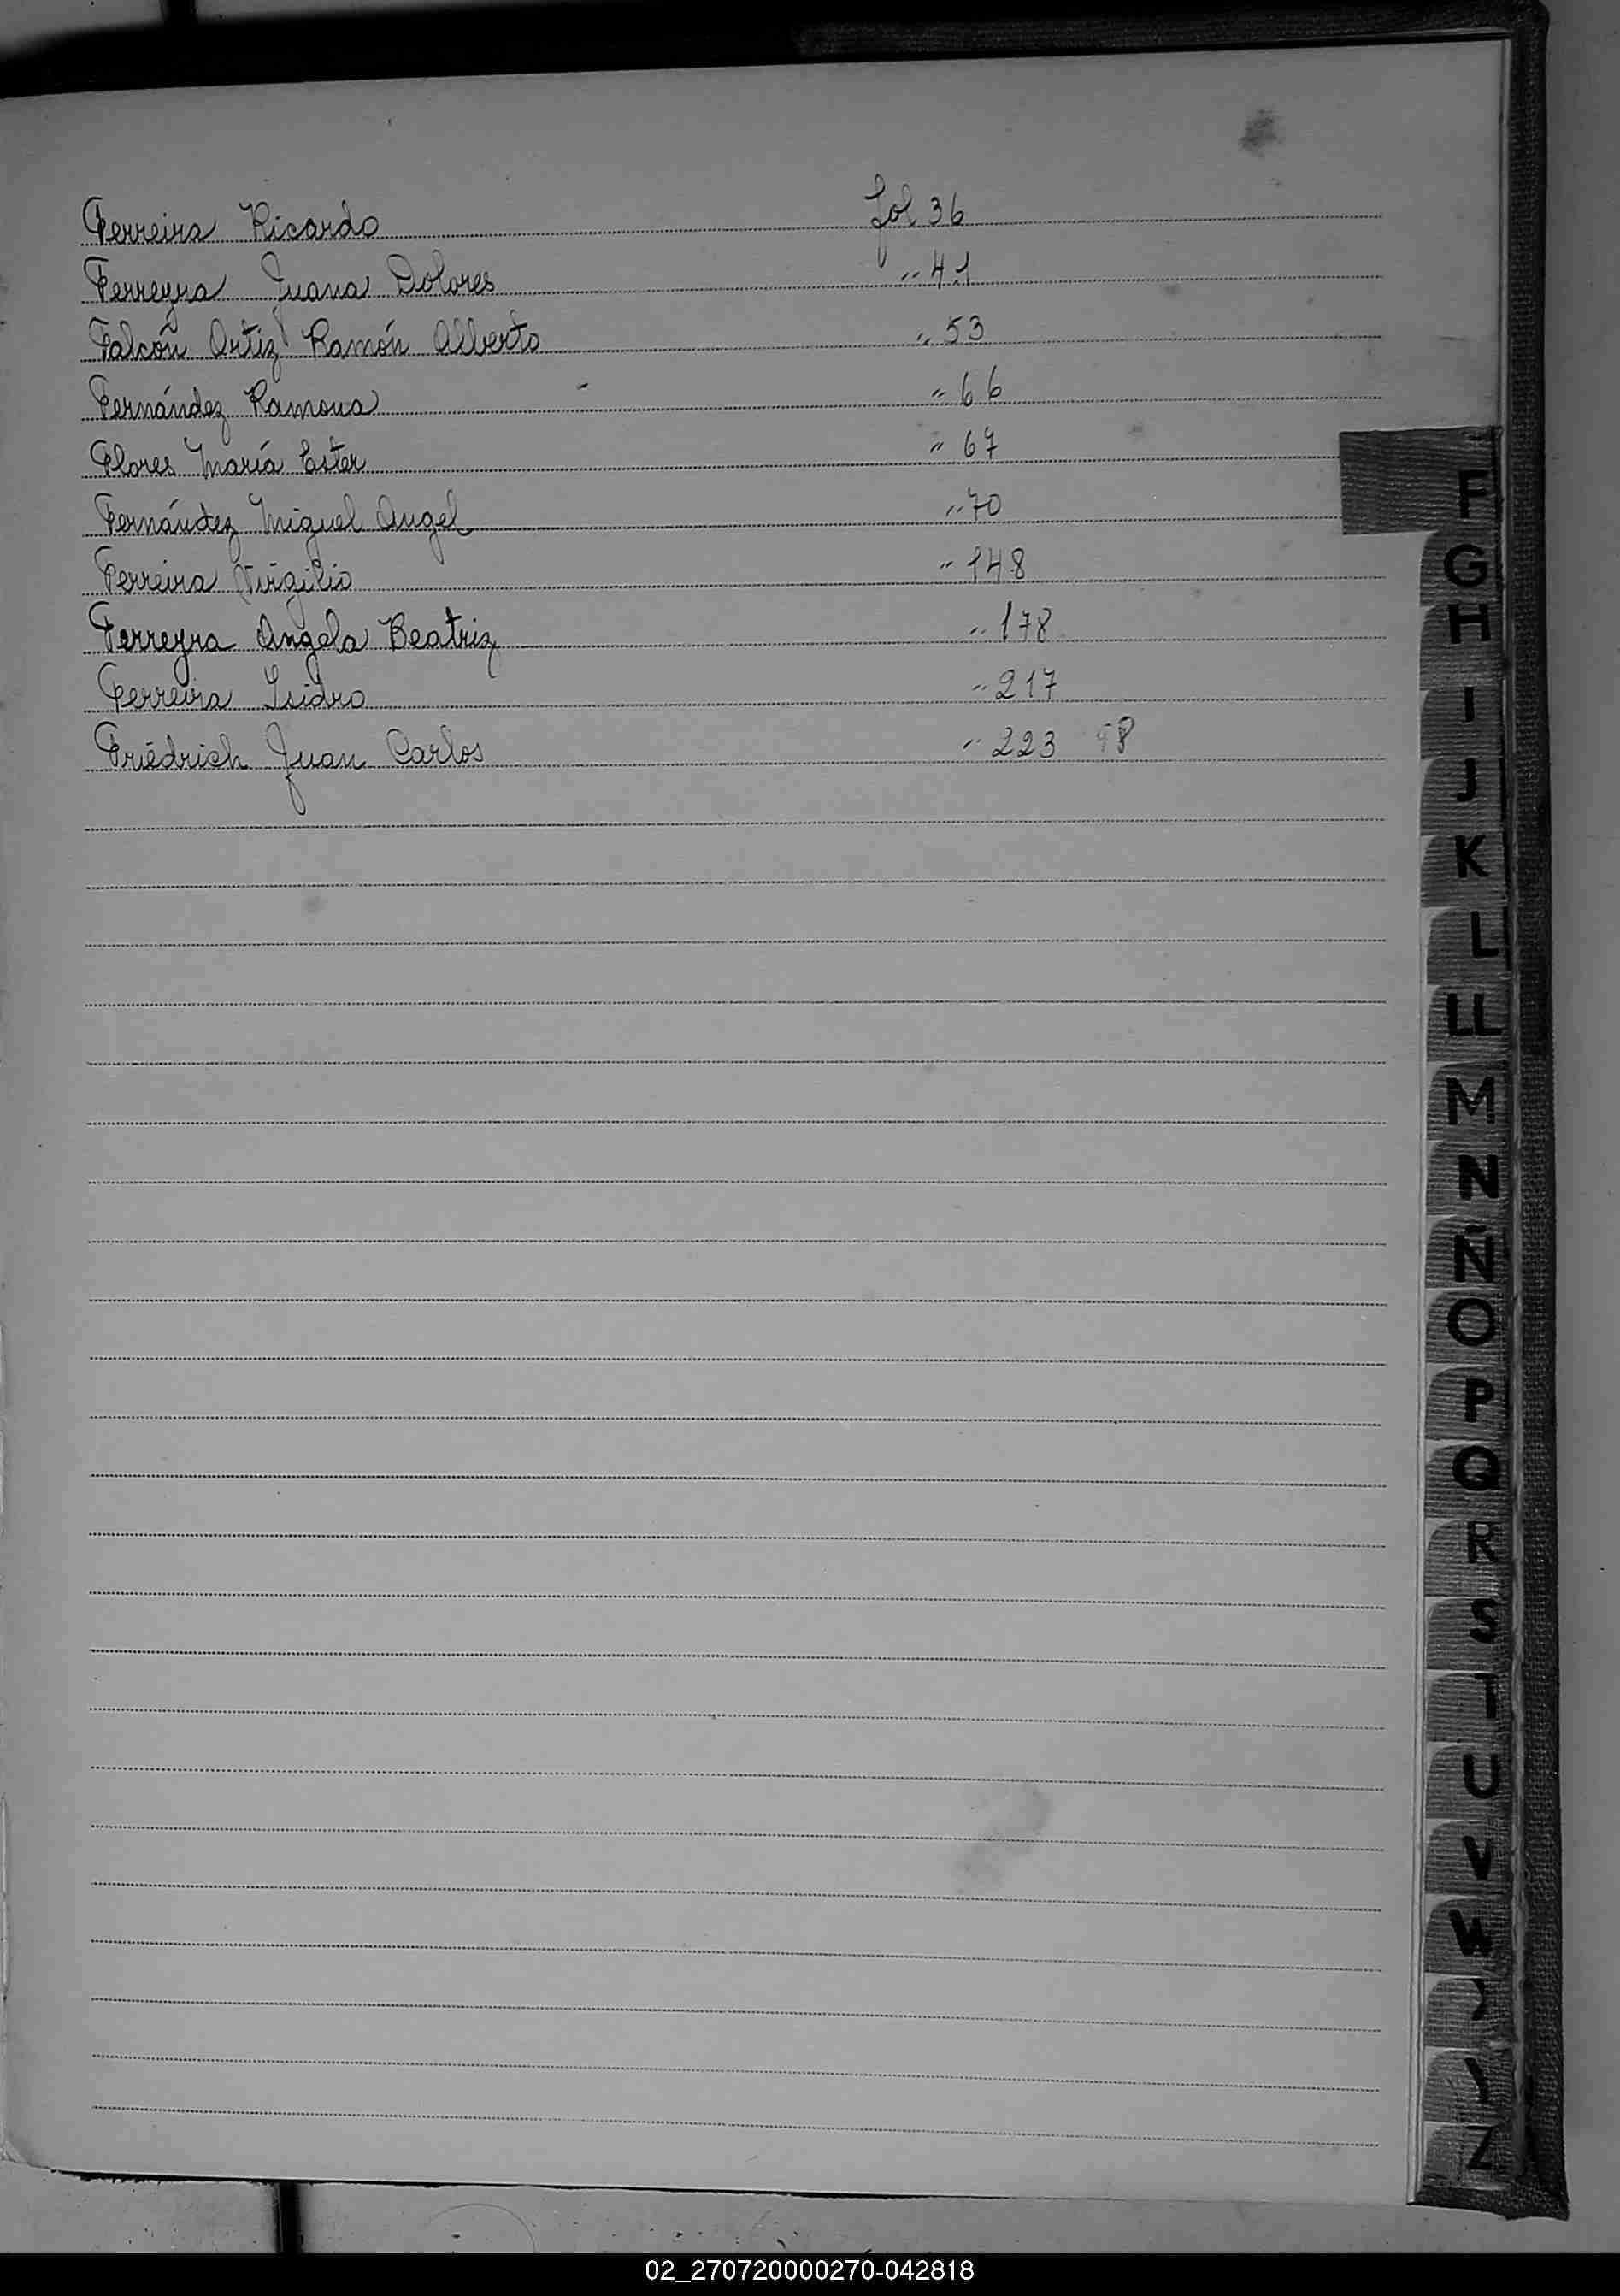 Ferreira Ricardo fol 36
Ferreyra Juana Dolores " 41
Falcón Ortiz Ramón Alberto " 53
Fernández Ramona " 66
Flores María Ester " 67
Fernández Miguel Angel " 70
Ferreira Virgilio " 148
Ferreyra Angela Beatriz " 178
Ferreira Isidro " 217
Friédrich Juan Carlos " 223
F
G
H
I
J
K
L
LL
M
N
Ñ
O
P
Q
R
S
T
U
V
W
Z
02_270720000270-042818